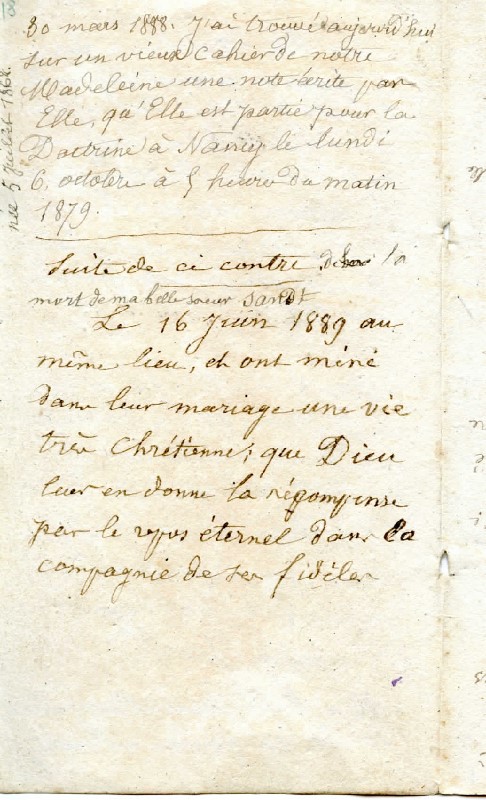 30 mars 1888. J'ai trouvé aujourd'hui
sur un vieux Cahier de notre
Madeleine une note écrite par
Elle, qu'Elle est partie pour la
Doctrine à Nancy le lundi
6. octobre à 5 heures du matin
1879.
née 5 juillet 1862.
Suite de ci contre, de la
mort de ma belle soeur Sandt
Le 16 Juin 1889 au
même lieu, et ont méné
dans leur mariage une vie
très Chrétienne; que Dieu
leur en donne la récompense
par le repos éternel dans la
compagnie de ses fidèles